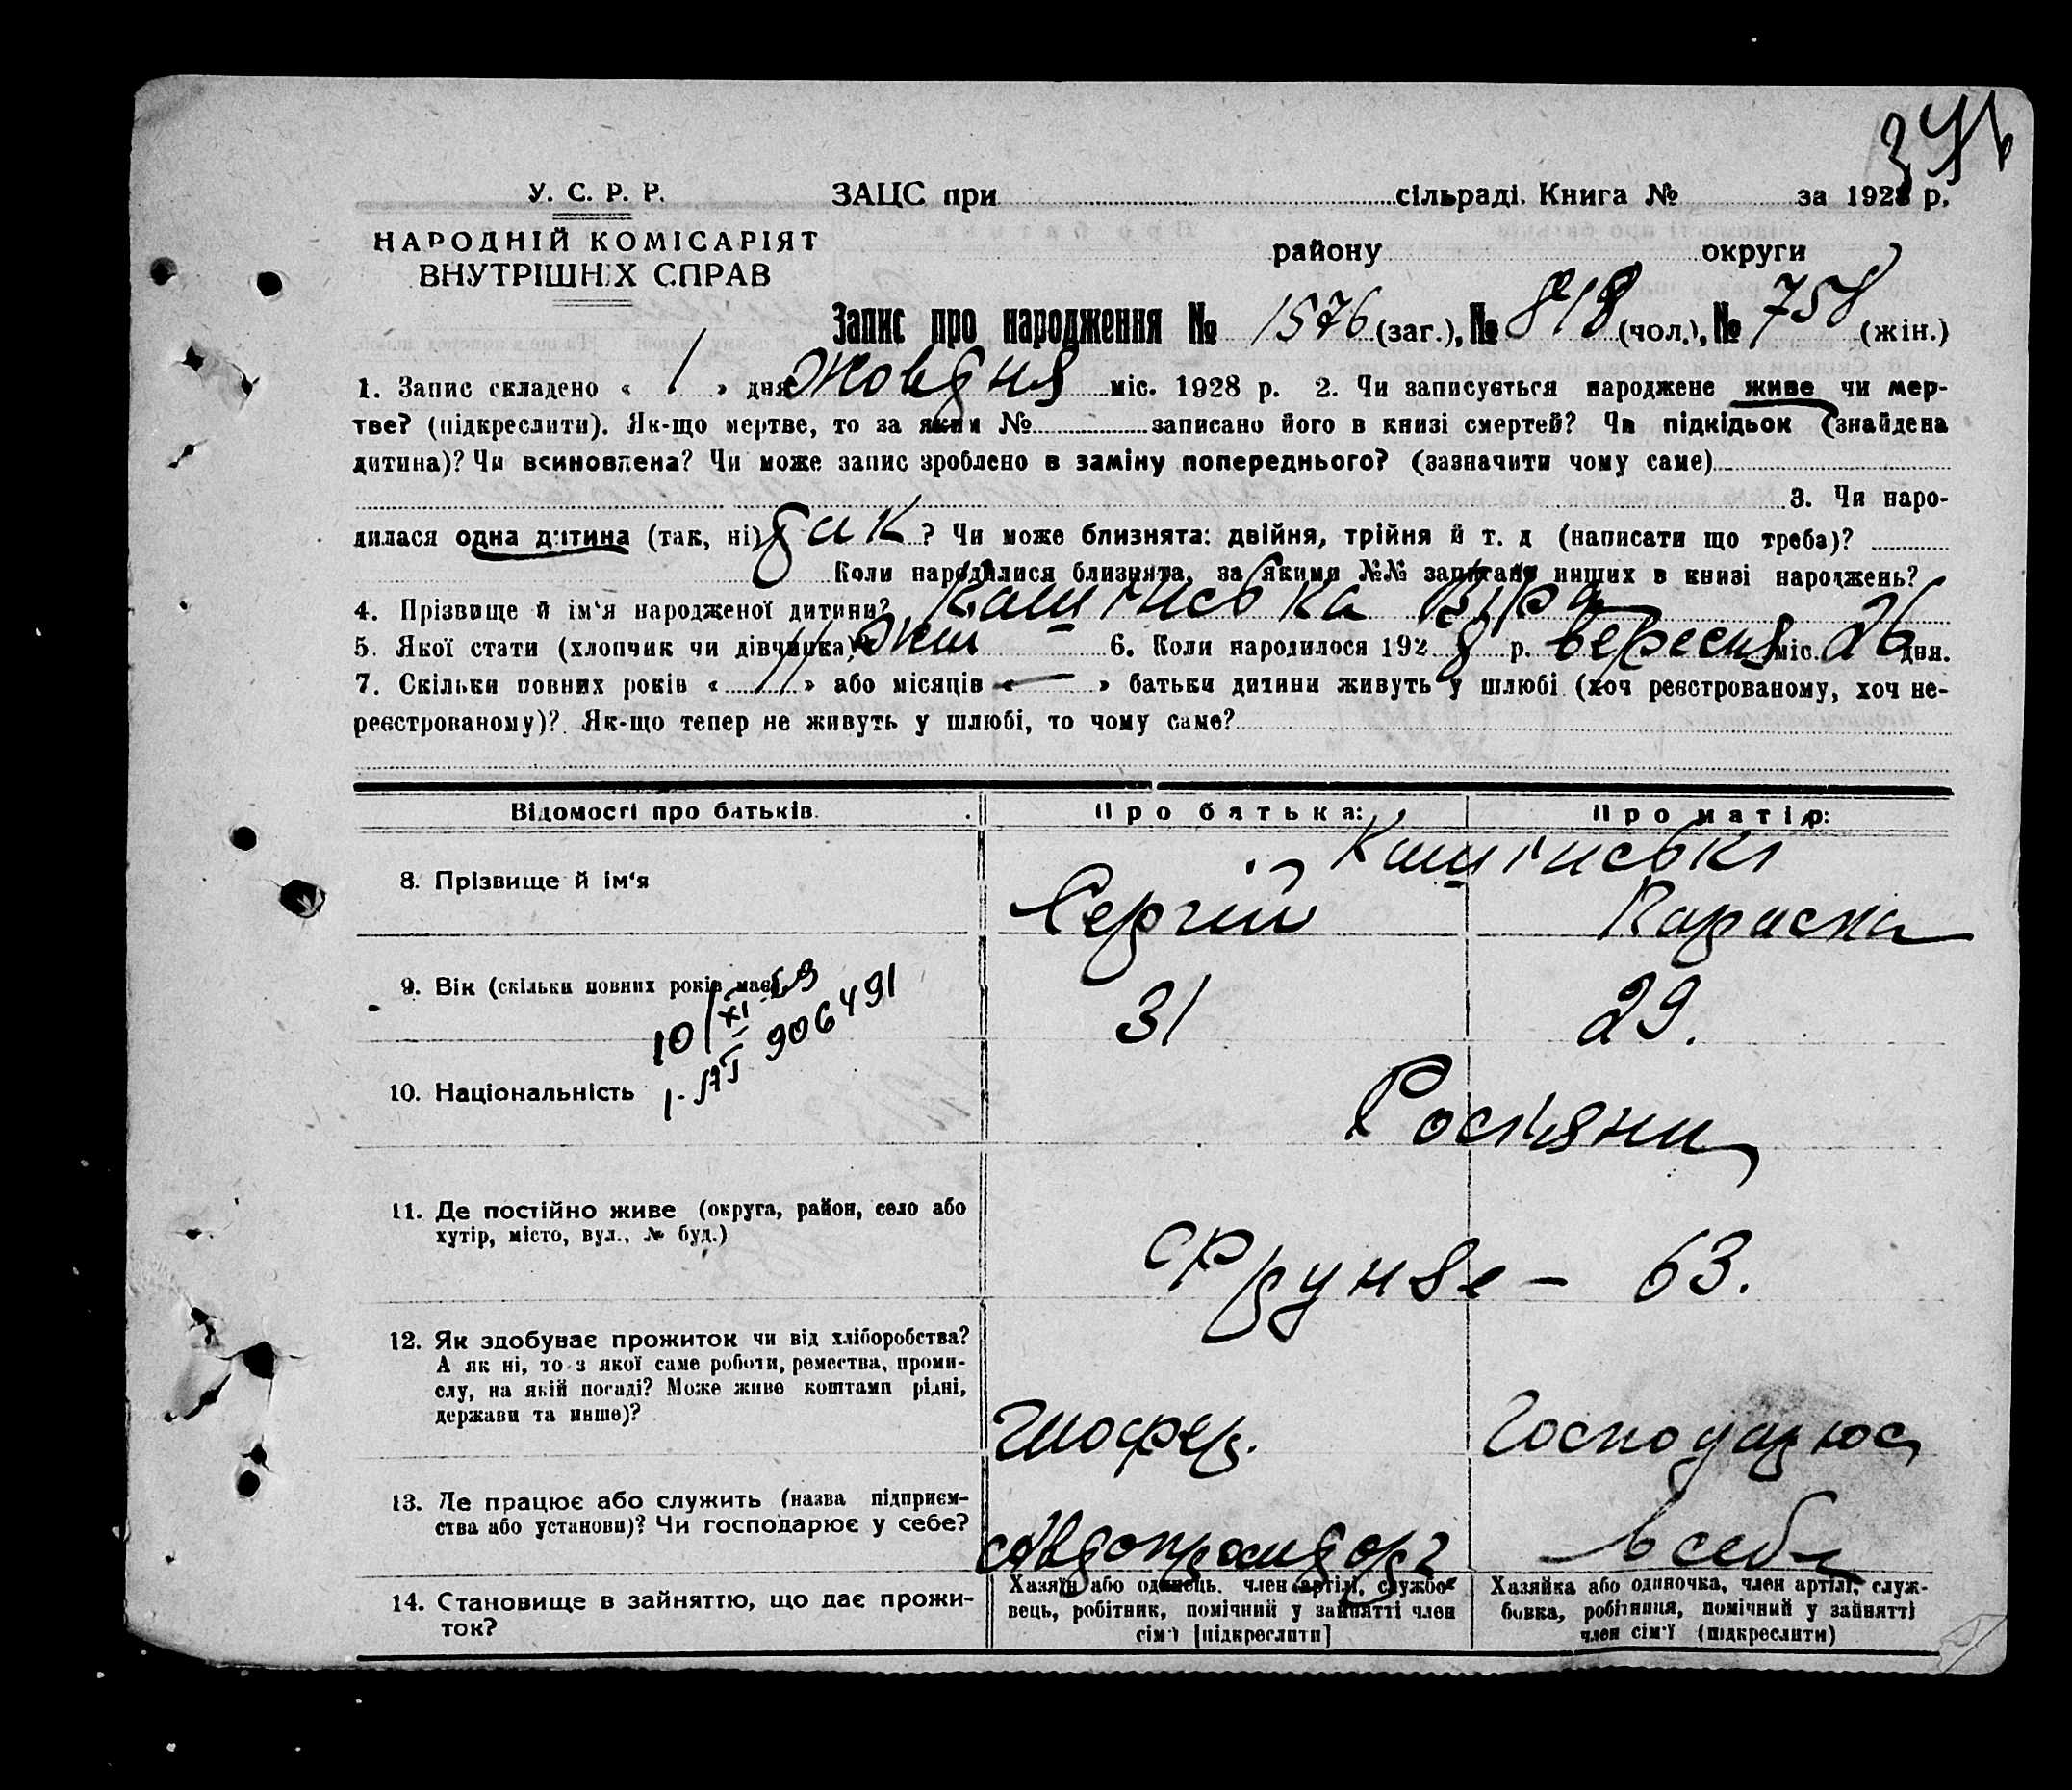 У. С. Р. Р.
НАРОДНІЙ КОМІСАРІЯТ
ВНУТРІШНІХ СПРАВ
ЗАЦС при сільраді. Книга № за 1928 р.
району округи
Запис про народження № 1576 (заг.), № 818 (чол.), № 758 (жін.)
1. Запис складено « 1 » дня Жовдня міс. 1928 р. 2. Чи записується народжене живе чи мер-
тве? (підкреслити). Як-що мертве, то за яким № записано його в книзі смертей? Чи підкідьок (знайдена
дитина)? Чи всиновлена? Чи може запис зроблено в заміну попереднього? (зазначити чому саме)
3. Чи наро-
дилася одна дитина (так, ні) так ? Чи може близнята: двійня, трійня й т. д (написати що треба)?
Коли народилися близнята, за якими №№ записано инших в книзі народжень?
4. Прізвище й ім'я народженої дитини? Віра
5. Якої стати (хлопчик чи дівчинка)? жін 6. Коли народилося 1928 р. вересня міс. 26 дня.
7. Скільки повних років « 11 » або місяців « — » батьки дитини живуть у шлюбі (хоч реєстрованому, хоч не-
реєстрованому)? Як-що тепер не живуть у шлюбі, то чому саме?
Відомості про батьків. Про батька: Про матір:
8. Прізвище й ім'я
Сергій Параска
9. Вік (скільки повних років має) 31 29.
10/XI
906491
10. Національність Росіяни
11. Де постійно живе (округа, район, село або
хутір, місто, вул., № буд.)
Фрунзе – 63.
12. Як здобуває прожиток чи від хліборобства?
А як ні, то з якої саме роботи, ремества, проми-
слу, на якій посаді? Може живе коштами рідні,
держави та инше)?
Шофер. Господарює
13. Де працює або служить (назва підприєм-
ства або установи)? Чи господарює у себе?
в себе
14. Становище в зайняттю, що дає прожи-
ток?
Хазяїн або одинець. член артілі, службо-
вець, робітник, помічний у зайнятті член
сім'ї [підкреслити]
Хазяйка або одиночка, член артілі, служ-
бовка, робітниця, помічний у зайнятті
член сім'ї (підкреслити)